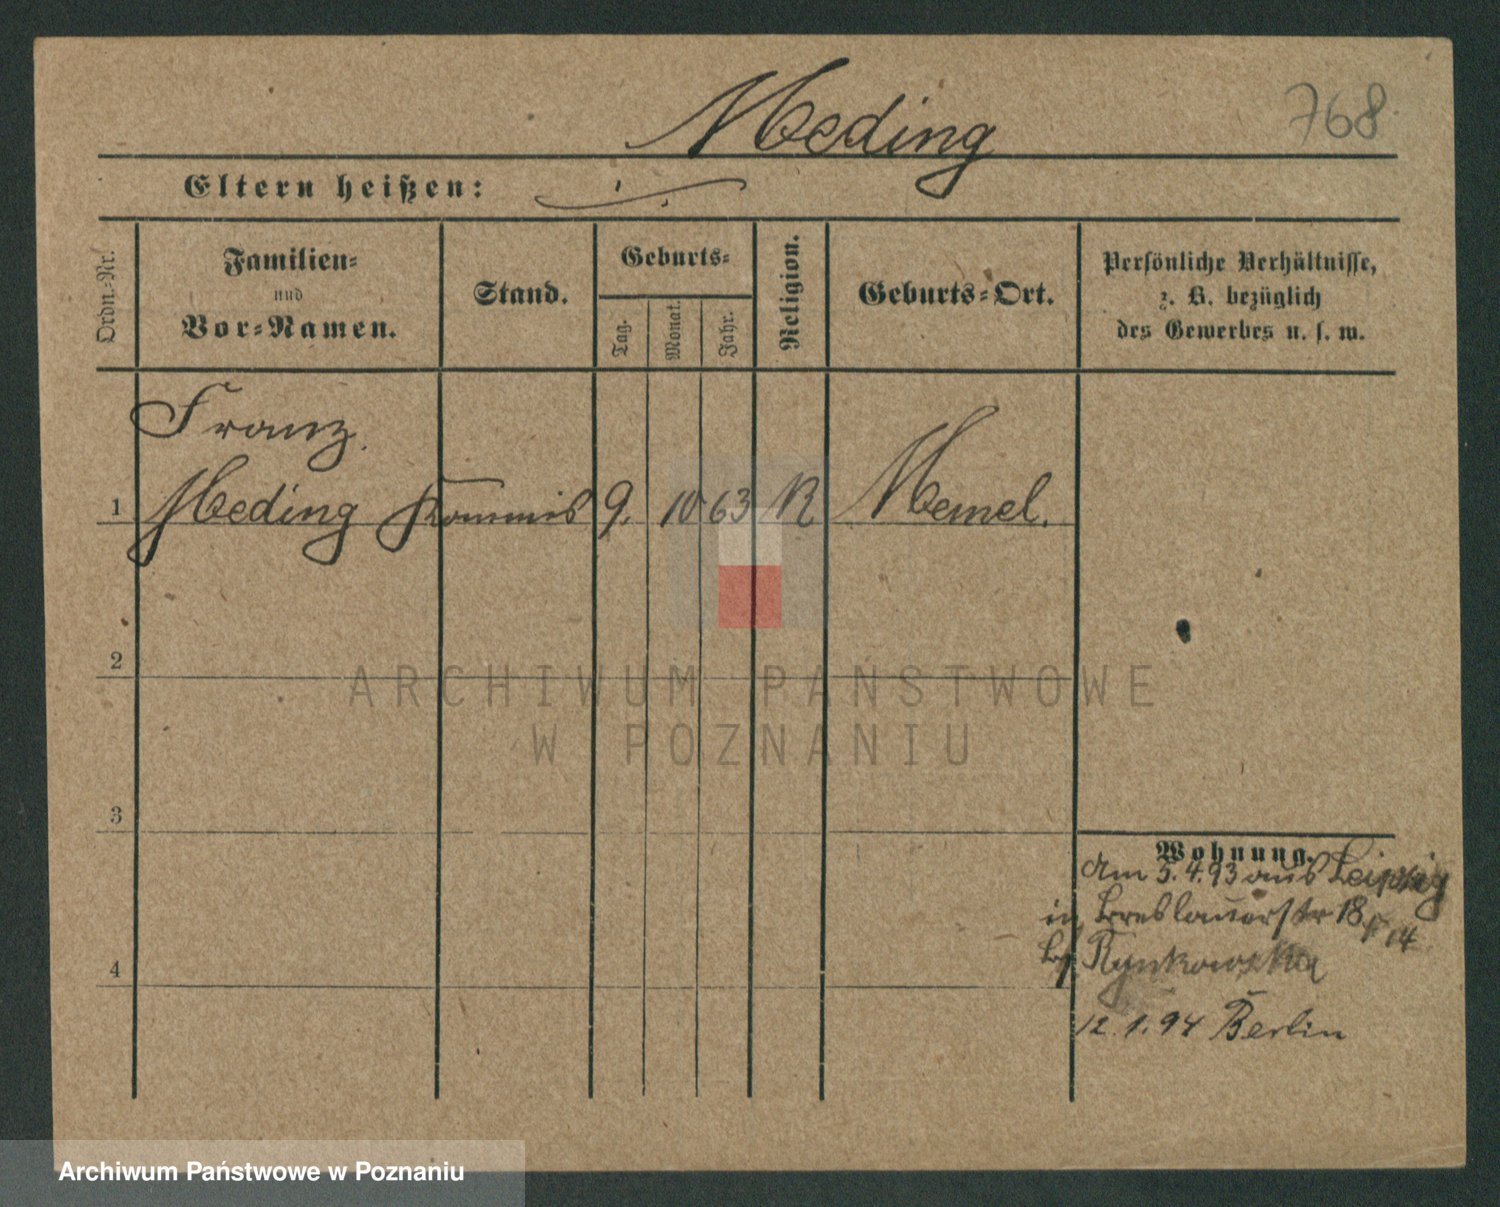 Meding
768
Eltern heißen:
Ordn.-Nr.
Familien-
und
Vor-Namen.
Stand.
Geburts-
Tag.
Monat.
Jahr.
Religion.
Geburts-Ort.
Persönliche Verhältnisse,
z. B. bezüglich
des Gewerbes u. s. w.
Franz
1 Meding Kommis 9. 10 63 Memel.
2
3
4
ARCHIWUM PAŃSTWOWE
W POZNANIU
Wohnung.
Am 5.4.93 aus Leipzig
in Breslauerstr 18
14
by Rynkowska
12.1.94 Berlin
Archiwum Państwowe w Poznaniu